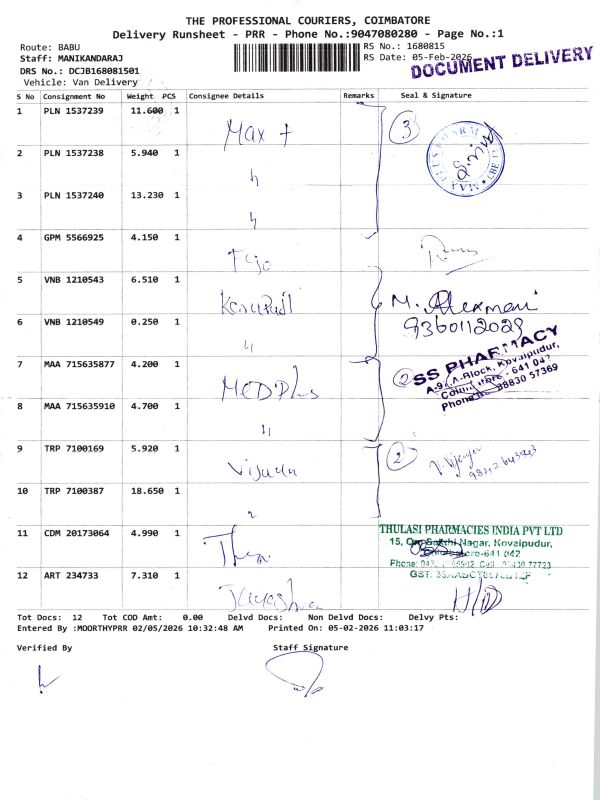 THE PROFESSIONAL COURIERS, COIMBATORE
Delivery Runsheet - PRR - Phone No.:9047080280 - Page No.:1
Route: BABU
RS No.: 1680815
Staff: MANIKANDARAJ
RS Date: 05-Feb-2026
DRS No.: DCJB168081501
DOCUMENT DELIVERY
Vehicle: Van Delivery
S No Consignment No Weight PCS Consignee Details Remarks Seal & Signature
1 PLN 1537239 11.600 1 Max + 3
2 PLN 1537238 5.940 1 "
3 PLN 1537240 13.230 1 "
4 GPM 5566925 4.150 1
5 VNB 1210543 6.510 1
9360112029
6 VNB 1210549 0.250 1 "
7 MAA 715635877 4.200 1 MEDPlus 2
SS PHARMACY
A-9, A-Block, Kovaipudur,
Coimbatore - 641 042
8 MAA 715635910 4.700 1 "
9 TRP 7100169 5.920 1 Vijaya 2
10 TRP 7100387 18.650 1 "
11 CDM 20173064 4.990 1
THULASI PHARMACIES INDIA PVT LTD
15, Om Sakthi Nagar, Kovaipudur,
Coimbatore-641 042
12 ART 234733 7.310 1
Tot Docs: 12 Tot COD Amt: 0.00 Delvd Docs: Non Delvd Docs: Delvy Pts:
Entered By :MOORTHYPRR 02/05/2026 10:32:48 AM Printed On: 05-02-2026 11:03:17
Verified By Staff Signature